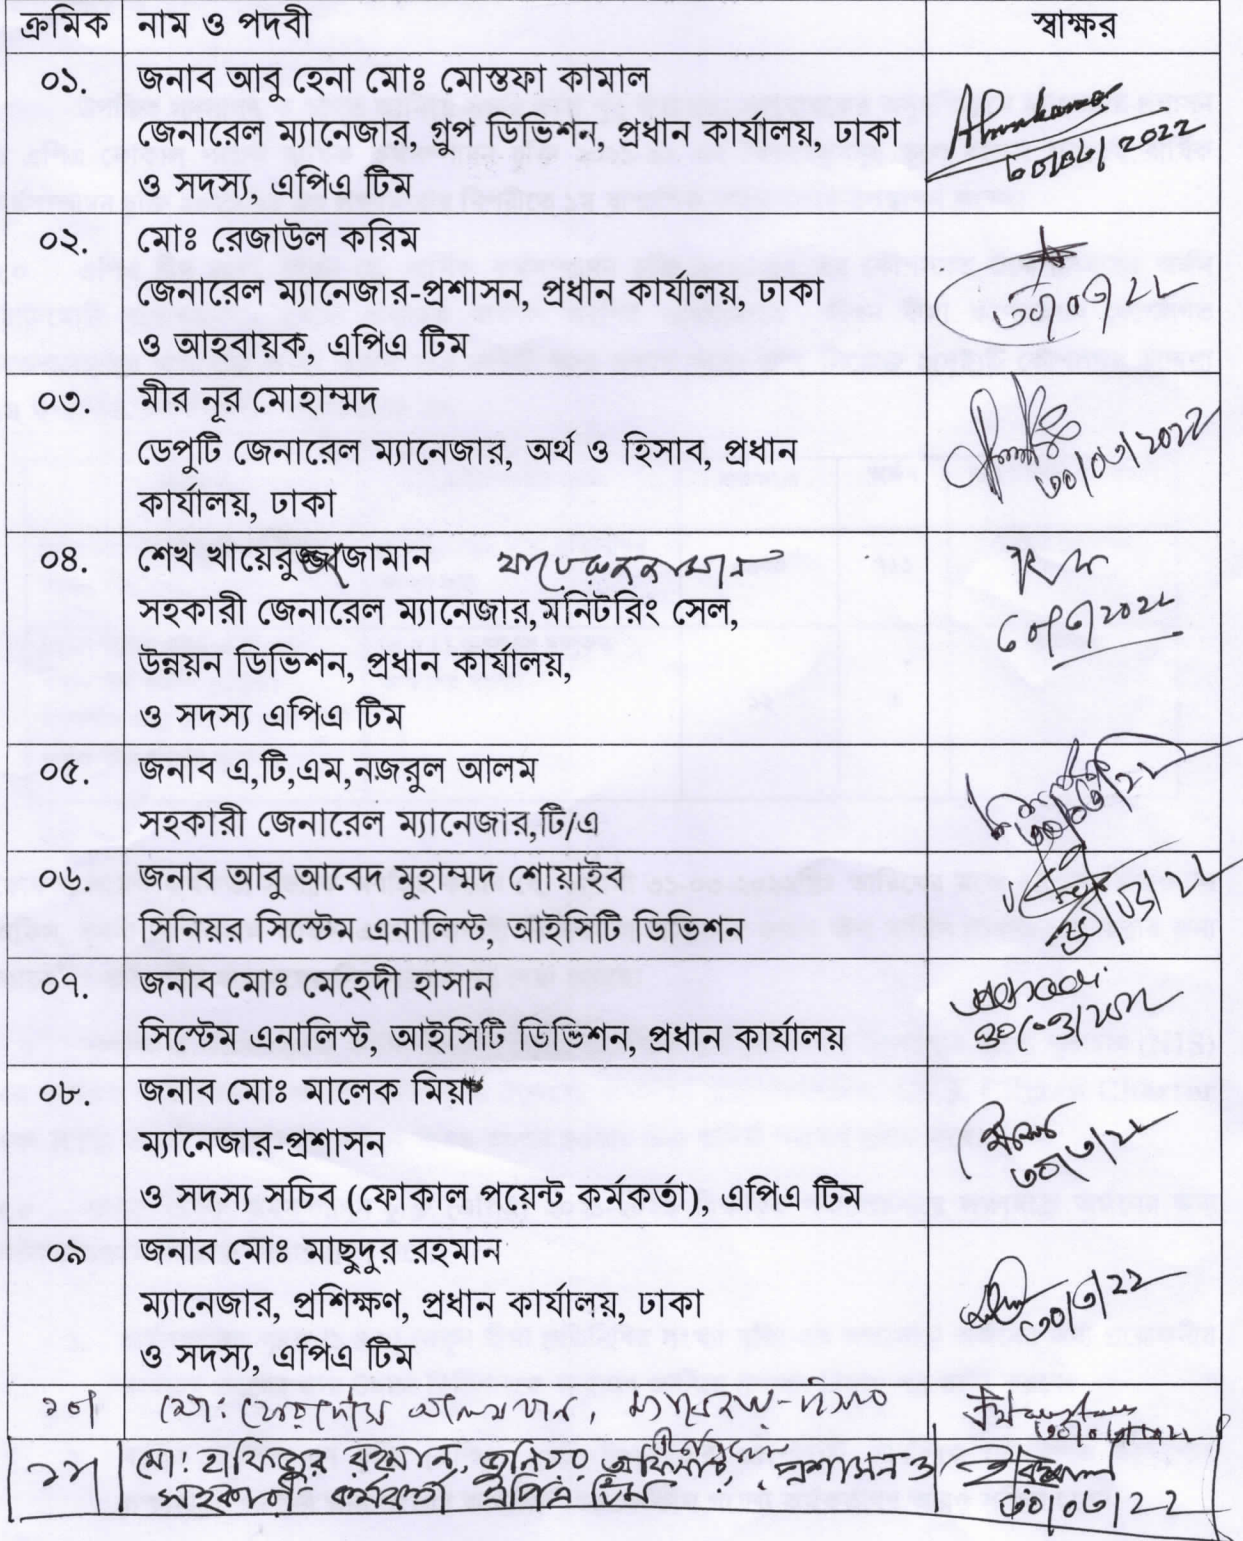 ক্রমিক নাম ও পদবী স্বাক্ষর
০১. জনাব আবু হেনা মোঃ মোস্তফা কামাল
জেনারেল ম্যানেজার, গ্রুপ ডিভিশন, প্রধান কার্যালয়, ঢাকা
ও সদস্য, এপিএ টিম
৩০/০৩/২০২২
০২. মোঃ রেজাউল করিম
জেনারেল ম্যানেজার-প্রশাসন, প্রধান কার্যালয়, ঢাকা
ও আহবায়ক, এপিএ টিম
৩০/০৩/২২
০৩. মীর নূর মোহাম্মদ
ডেপুটি জেনারেল ম্যানেজার, অর্থ ও হিসাব, প্রধান
কার্যালয়, ঢাকা
৩০/০৩/২০২২
০৪. শেখ খায়েরুজ্জামান
সহকারী জেনারেল ম্যানেজার,মনিটরিং সেল,
উন্নয়ন ডিভিশন, প্রধান কার্যালয়,
ও সদস্য এপিএ টিম
০৫. জনাব এ,টি,এম,নজরুল আলম
সহকারী জেনারেল ম্যানেজার,টি/এ
৩০/০৩/২২
০৬. জনাব আবু আবেদ মুহাম্মদ শোয়াইব
সিনিয়র সিস্টেম এনালিস্ট, আইসিটি ডিভিশন
০৭. জনাব মোঃ মেহেদী হাসান
সিস্টেম এনালিস্ট, আইসিটি ডিভিশন, প্রধান কার্যালয়
৩০/০৩/২০২২
০৮. জনাব মোঃ মালেক মিয়া
ম্যানেজার-প্রশাসন
ও সদস্য সচিব (ফোকাল পয়েন্ট কর্মকর্তা), এপিএ টিম
৩০/৩/২২
০৯ জনাব মোঃ মাছুদুর রহমান
ম্যানেজার, প্রশিক্ষণ, প্রধান কার্যালয়, ঢাকা
ও সদস্য, এপিএ টিম
৩০/৩/২২
১০। মো: ফেরদৌস
১১। মো: হাফিজুর রহমান, জুনিয়র অফিসার প্রশাসন ও
সহকারী কর্মকর্তা এপিএ টিম
৩০/০৩/২২